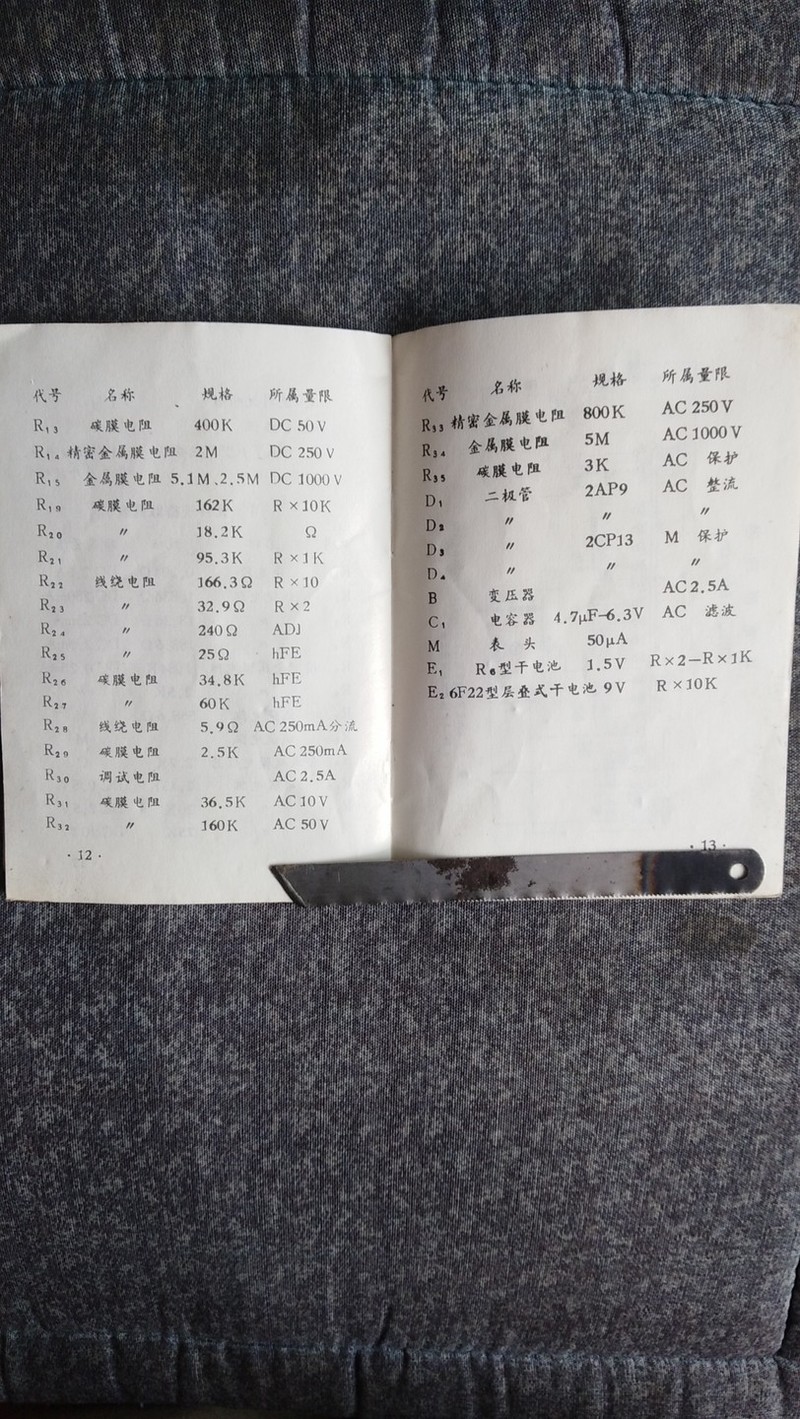 代号 名称 规格 所属量限
R₁₃ 碳膜电阻 400K DC 50V
R₁₄ 精密金属膜电阻 2M DC 250V
R₁₅ 金属膜电阻 5.1M、2.5M DC 1000V
R₁₉ 碳膜电阻 162K R×10K
R₂₀ 〃 18.2K Ω
R₂₁ 〃 95.3K R×1K
R₂₂ 线绕电阻 166.3Ω R×10
R₂₃ 〃 32.9Ω R×2
R₂₄ 〃 240Ω ADJ
R₂₅ 〃 25Ω hFE
R₂₆ 碳膜电阻 34.8K hFE
R₂₇ 〃 60K hFE
R₂₈ 线绕电阻 5.9Ω AC 250mA分流
R₂₉ 碳膜电阻 2.5K AC 250mA
R₃₀ 调试电阻 AC 2.5A
R₃₁ 碳膜电阻 36.5K AC 10V
R₃₂ 〃 160K AC 50V
·12·
代号 名称 规格 所属量限
R₃₃ 精密金属膜电阻 800K AC 250V
R₃₄ 金属膜电阻 5M AC 1000V
R₃₅ 碳膜电阻 3K AC 保护
D₁ 二极管 2AP9 AC 整流
D₂ 〃 〃 〃
D₃ 〃 2CP13 M 保护
D₄ 〃 〃 〃
B 变压器 AC 2.5A
C₁ 电容器 4.7μF-6.3V AC 滤波
M 表 头 50μA
E₁ R₆型干电池 1.5V R×2—R×1K
E₂ 6F22型层叠式干电池 9V R×10K
·13·